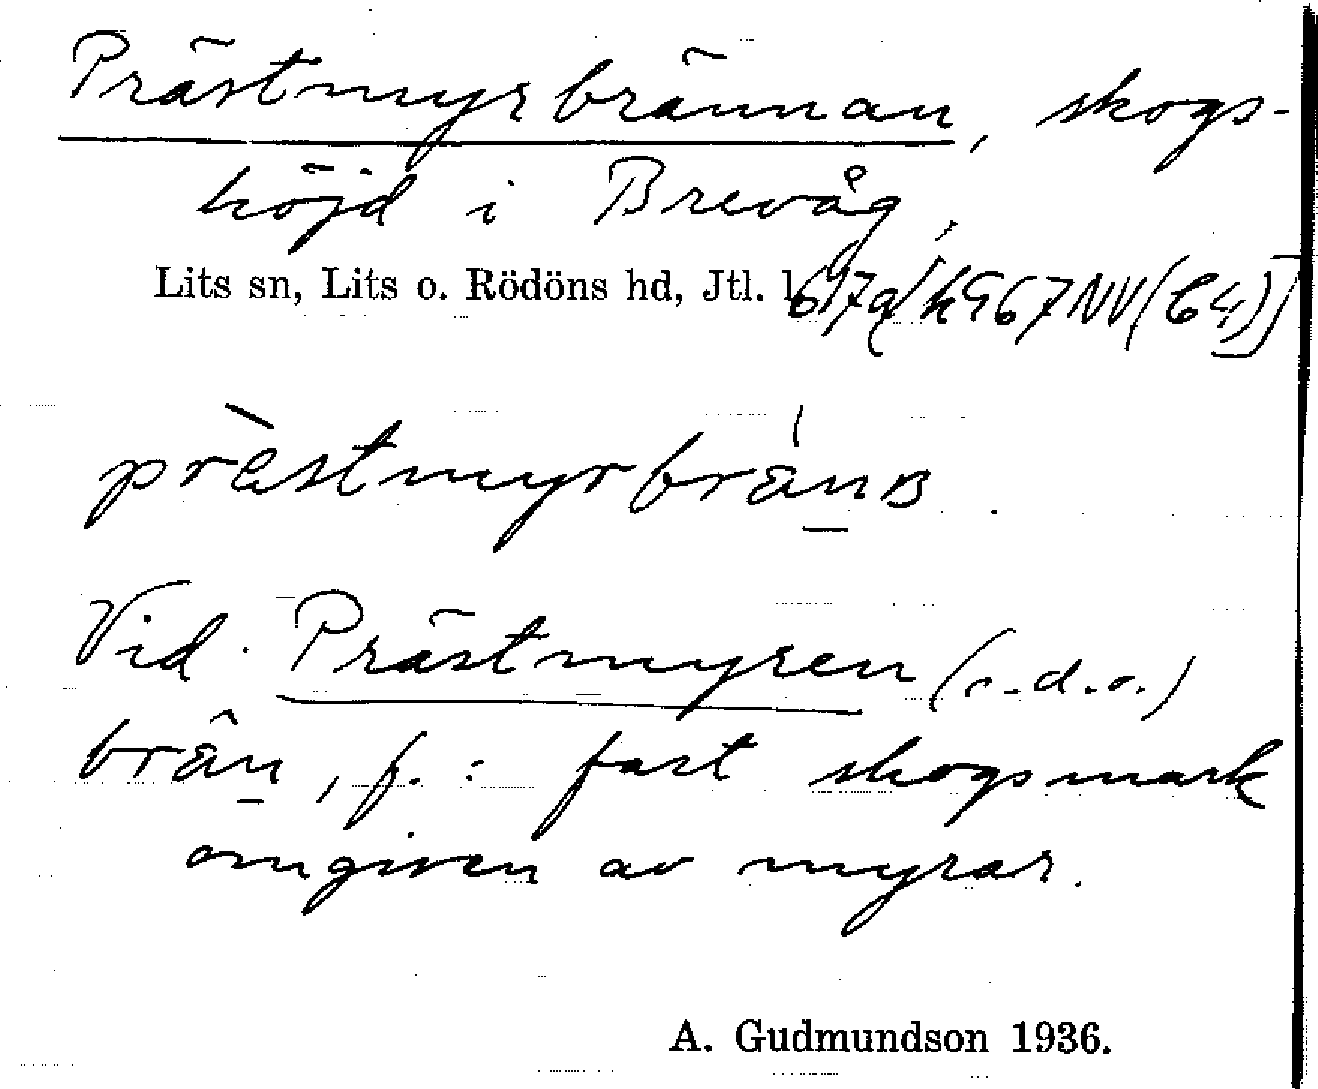 Prästmyrbrännan, skogs-
höjd i Brevåg,
Lits sn, Lits o. Rödöns hd, Jtl. l.
prèstmyrbrä́nʙ.
Vid Prästmyren (s.d.o.)
brân, f.: fast skogsmark
omgiven av myrar.
A. Gudmundson 1936.